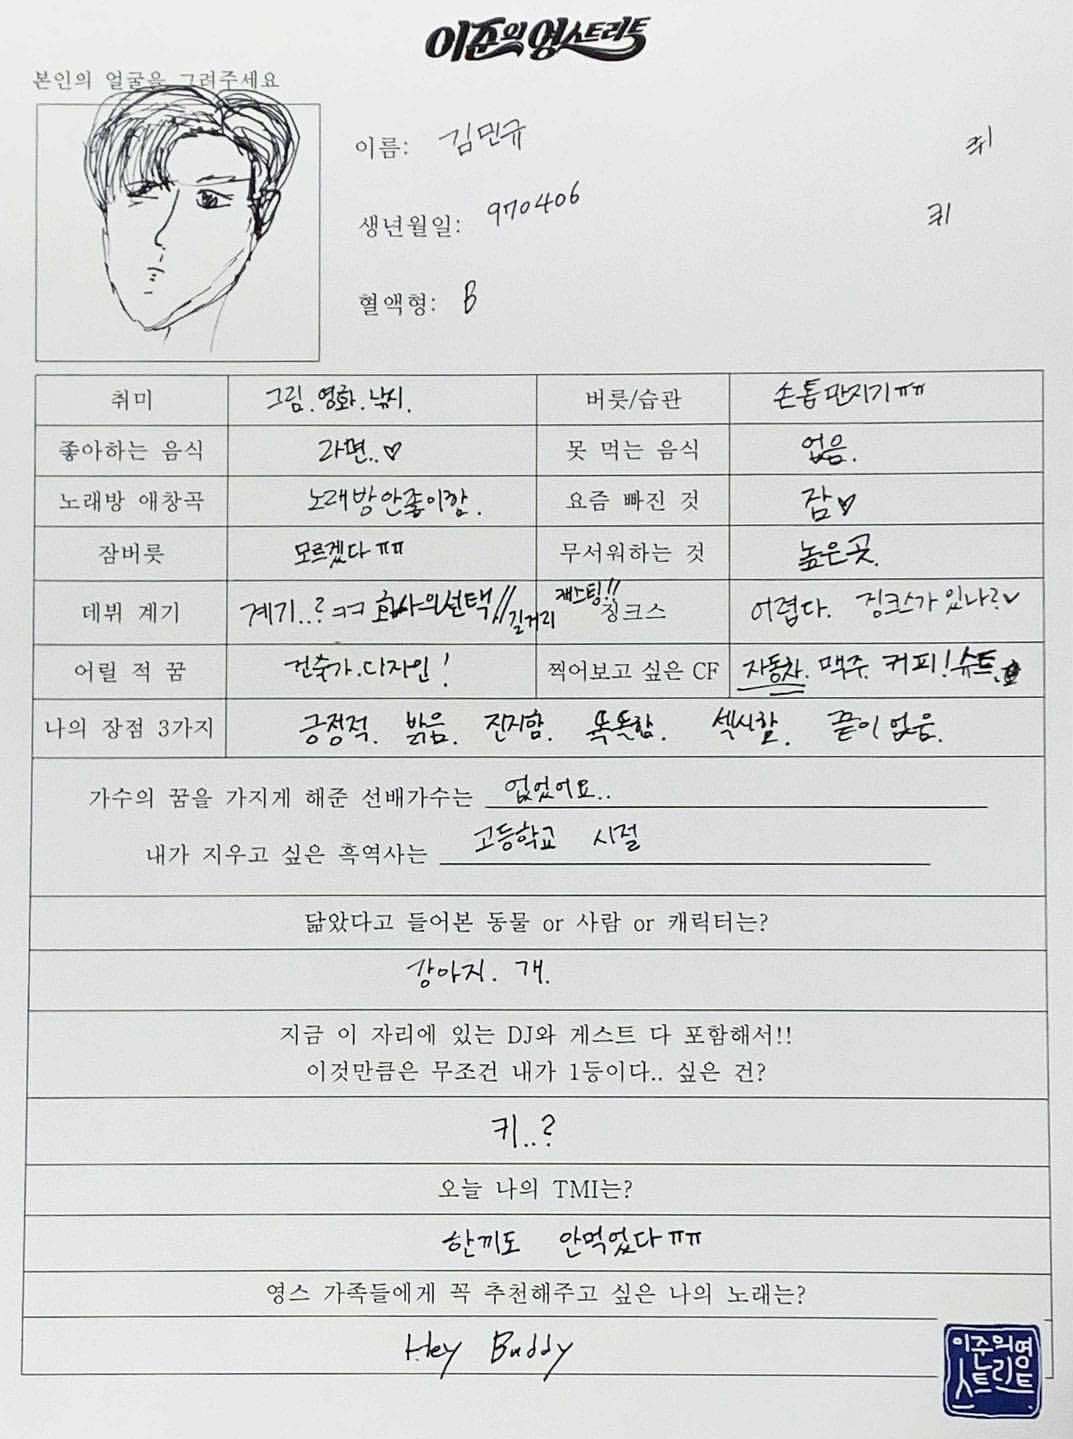 이준의 영스트리트
본인의 얼굴을 그려주세요
이름: 김민규
쥐
생년월일: 970406
키
혈액형: B
취미 그림. 영화. 낚시. 버릇/습관 손톱만지기ㅠㅠ
좋아하는 음식 라면..♡ 못 먹는 음식 없음.
노래방 애창곡 노래방안좋아함. 요즘 빠진 것 잠♥
잠버릇 모르겠다ㅠㅠ 무서워하는 것 높은곳.
데뷔 계기 계기..? ㅋㅋ 회사의선택!! 길거리 캐스팅!! 징크스 어렵다. 징크스가 있나?♥
어릴 적 꿈 건축가.디자인! 찍어보고 싶은 CF 자동차. 맥주. 커피! 슈트.
나의 장점 3가지 긍정적. 밝음. 진지함. 똑똑함. 섹시함. 끝이 없음.
가수의 꿈을 가지게 해준 선배가수는 없었어요..
내가 지우고 싶은 흑역사는 고등학교 시절
닮았다고 들어본 동물 or 사람 or 캐릭터는?
강아지. 개.
지금 이 자리에 있는 DJ와 게스트 다 포함해서!!
이것만큼은 무조건 내가 1등이다.. 싶은 건?
키..?
오늘 나의 TMI는?
한끼도 안먹었다ㅠㅠ
영스 가족들에게 꼭 추천해주고 싶은 나의 노래는?
Hey Buddy
이준의영
스트리트